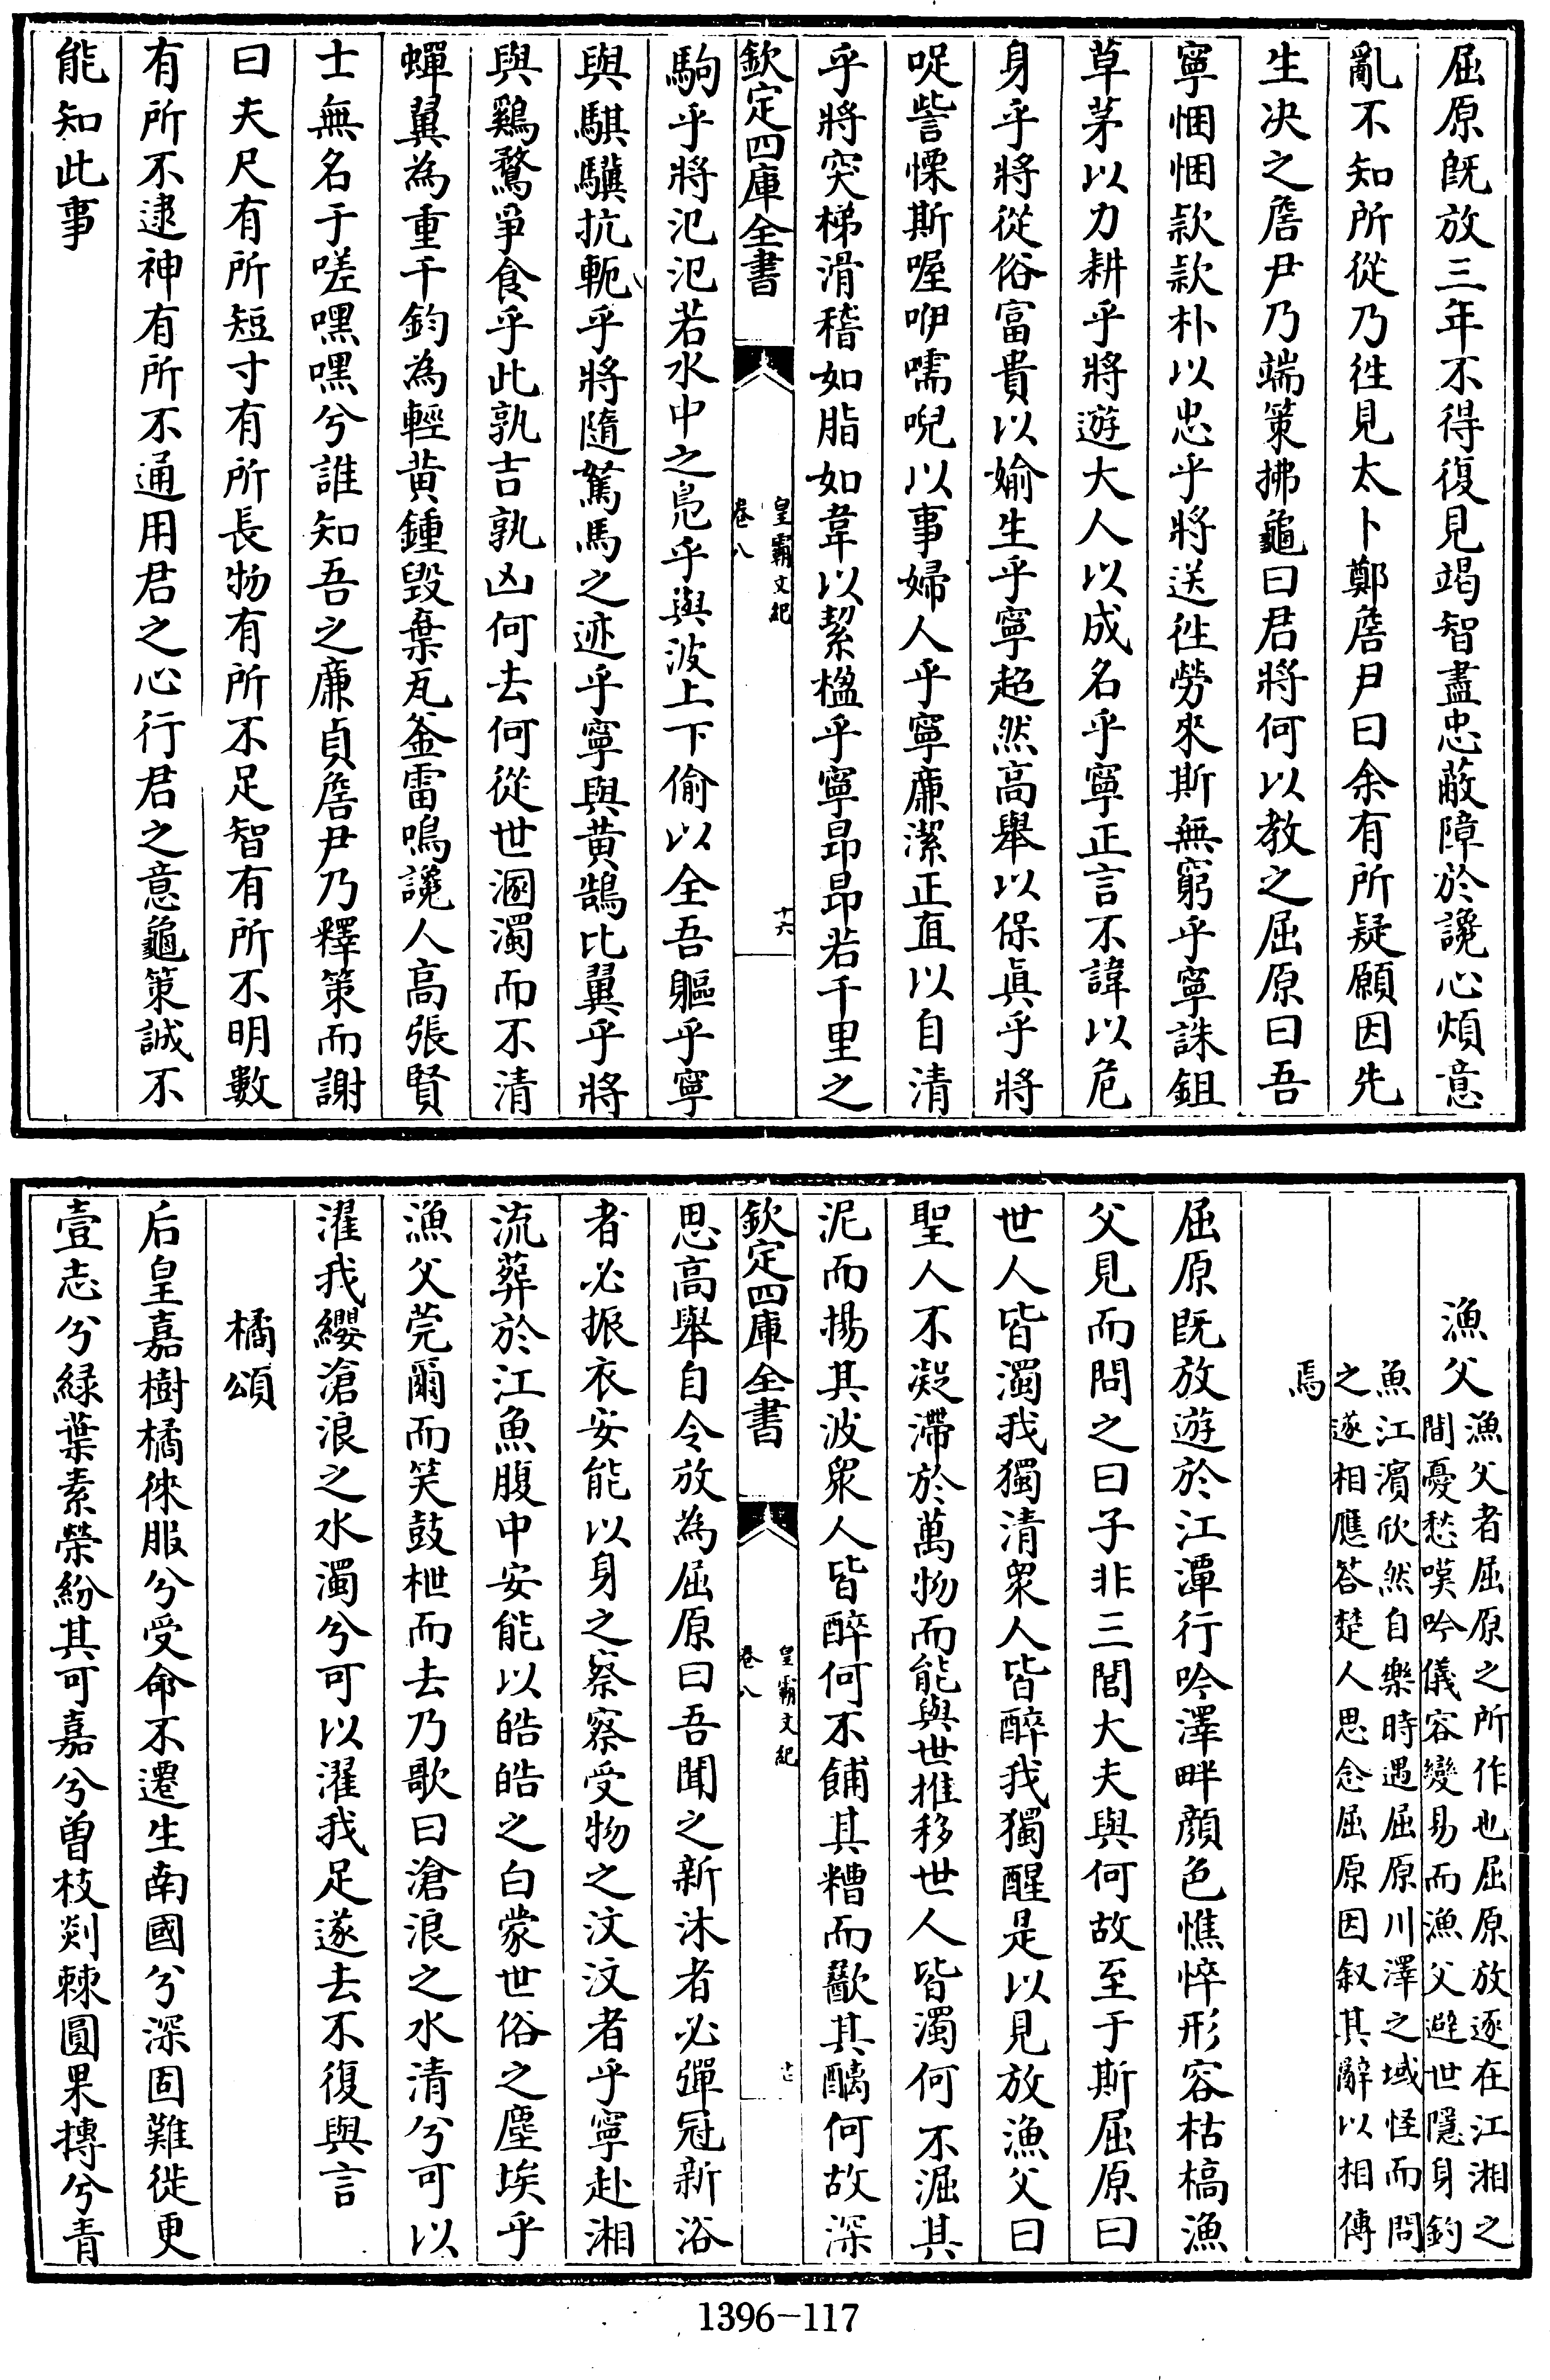 屈原旣放三年不得復見竭智盡忠蔽障於讒心煩意
亂不知所從乃徃見太卜鄭詹尹曰余有所疑願因先
生决之詹尹乃端策拂龜曰君將何以教之屈原曰吾
寧悃悃款款朴以忠乎將送徃勞來斯無窮乎寧誅鉏
草茅以力耕乎將遊大人以成名乎寧正言不諱以危
身乎將從俗富貴以媮生乎寧超然高舉以保眞乎將
哫訾慄斯喔咿嚅唲以事婦人乎寧廉潔正直以自清
乎將突梯滑稽如脂如韋以絜楹乎寧昂昂若千里之
欽定四庫全書
皇霸文紀
卷八
十六
駒乎將氾氾若水中之鳧乎與波上下偷以全吾軀乎寧
與騏驥抗軛乎將隨駑馬之迹乎寧與黄鵠比翼乎將
與鷄鶩爭食乎此孰吉孰凶何去何從世溷濁而不清
蟬翼為重千鈞為輕黄鍾毀棄瓦釜雷鳴讒人高張賢
士無名于嗟嘿嘿兮誰知吾之廉貞詹尹乃釋策而謝
曰夫尺有所短寸有所長物有所不足智有所不明數
有所不逮神有所不通用君之心行君之意龜策誠不
能知此事
漁父漁父者屈原之所作也屈原放逐在江湘之
間憂愁嘆吟儀容變易而漁父避世隱身釣
魚江濱欣然自樂時遇屈原川澤之域怪而問
之遂相應答楚人思念屈原因叙其辭以相傳
焉
屈原旣放遊於江潭行吟澤畔顔色憔悴形容枯槁漁
父見而問之曰子非三閭大夫與何故至于斯屈原曰
世人皆濁我獨清衆人皆醉我獨醒是以見放漁父曰
聖人不凝滯於萬物而能與世推移世人皆濁何不淈其
泥而揚其波衆人皆醉何不餔其糟而歠其醨何故深
欽定四庫全書
皇霸文紀
卷八
十七
思高舉自令放為屈原曰吾聞之新沐者必彈冠新浴
者必振衣安能以身之察察受物之汶汶者乎寧赴湘
流葬於江魚腹中安能以皓皓之白蒙世俗之塵埃乎
漁父莞爾而笑鼓枻而去乃歌曰滄浪之水清兮可以
濯我纓滄浪之水濁兮可以濯我足遂去不復與言
橘頌
后皇嘉樹橘徠服兮受命不遷生南國兮深固難徙更
壹志兮緑葉素榮紛其可嘉兮曾枝剡棘圓果摶兮青
1396-117